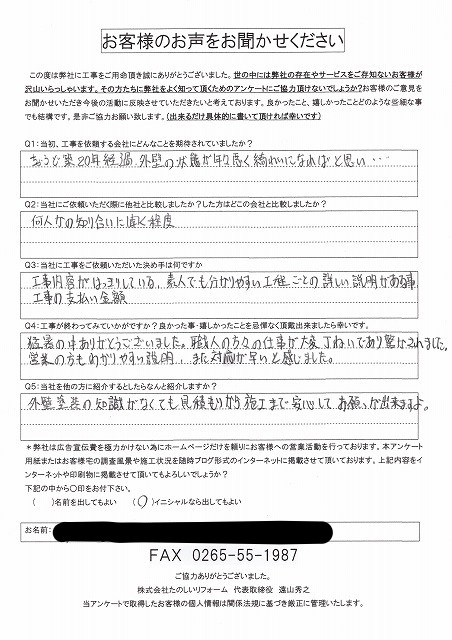 お客様のお声をお聞かせください
この度は弊社に工事をご用命頂き誠にありがとうございました。世の中には弊社の存在やサービスをご存知ないお客様が
沢山いらっしゃいます。その方たちに弊社をよく知って頂くためのアンケートにご協力頂けないでしょうか?お客様のご意見を
お聞かせいただき今後の活動に反映させていただきたいと考えております。良かったこと、嬉しかったことどのような些細な事
でも結構です。是非ご協力お願い致します。(出来るだけ具体的に書いて頂ければ幸いです)
Q1:当初、工事を依頼する会社にどんなことを期待されていましたか?
ちょうど築20年経過、外壁の状態が年々 綺れいになればと思い…
Q2:当社にご依頼いただく際に他社と比較しましたか?した方はどこの会社と比較しましたか?
何人かの知り合いに聞く程度
Q3:当社に工事をご依頼いただいた決め手は何ですか
工事内容がはっきりしている、素人でも分かりやすい工程ごとの詳しい説明がある事、
工事の支払い金額
Q4:工事が終わってみていかがですか?良かった事・嬉しかったことを忌憚なく頂戴出来ましたら幸いです。
猛暑の中ありがとうございました。職人の方々の仕事が大変丁ねいであり驚かされました。
営業の方もわかりやすい説明、また対応が早いと感じました。
Q5:当社を他の方に紹介するとしたらなんと紹介しますか?
外壁塗装の知識がなくても見積もりから施工まで安心してお願いが出来ますよ。
*弊社は広告宣伝費を極力かけない為にホームページだけを頼りにお客様への営業活動を行っております。本アンケート
用紙またはお客様宅の調査風景や施工状況を随時ブログ形式のインターネットに掲載させて頂いております。上記内容をイ
ンターネットや印刷物に掲載させて頂いてもよろしいでしょうか?
下記の中から〇印をお付下さい。
( )名前を出してもよい (○)イニシャルなら出してもよい
お名前:
FAX 0265-55-1987
ご協力ありがとうございました。
株式会社たのしいリフォーム 代表取締役 遠山秀之
当アンケートで取得したお客様の個人情報は関係法規に基づき厳正に管理いたします。